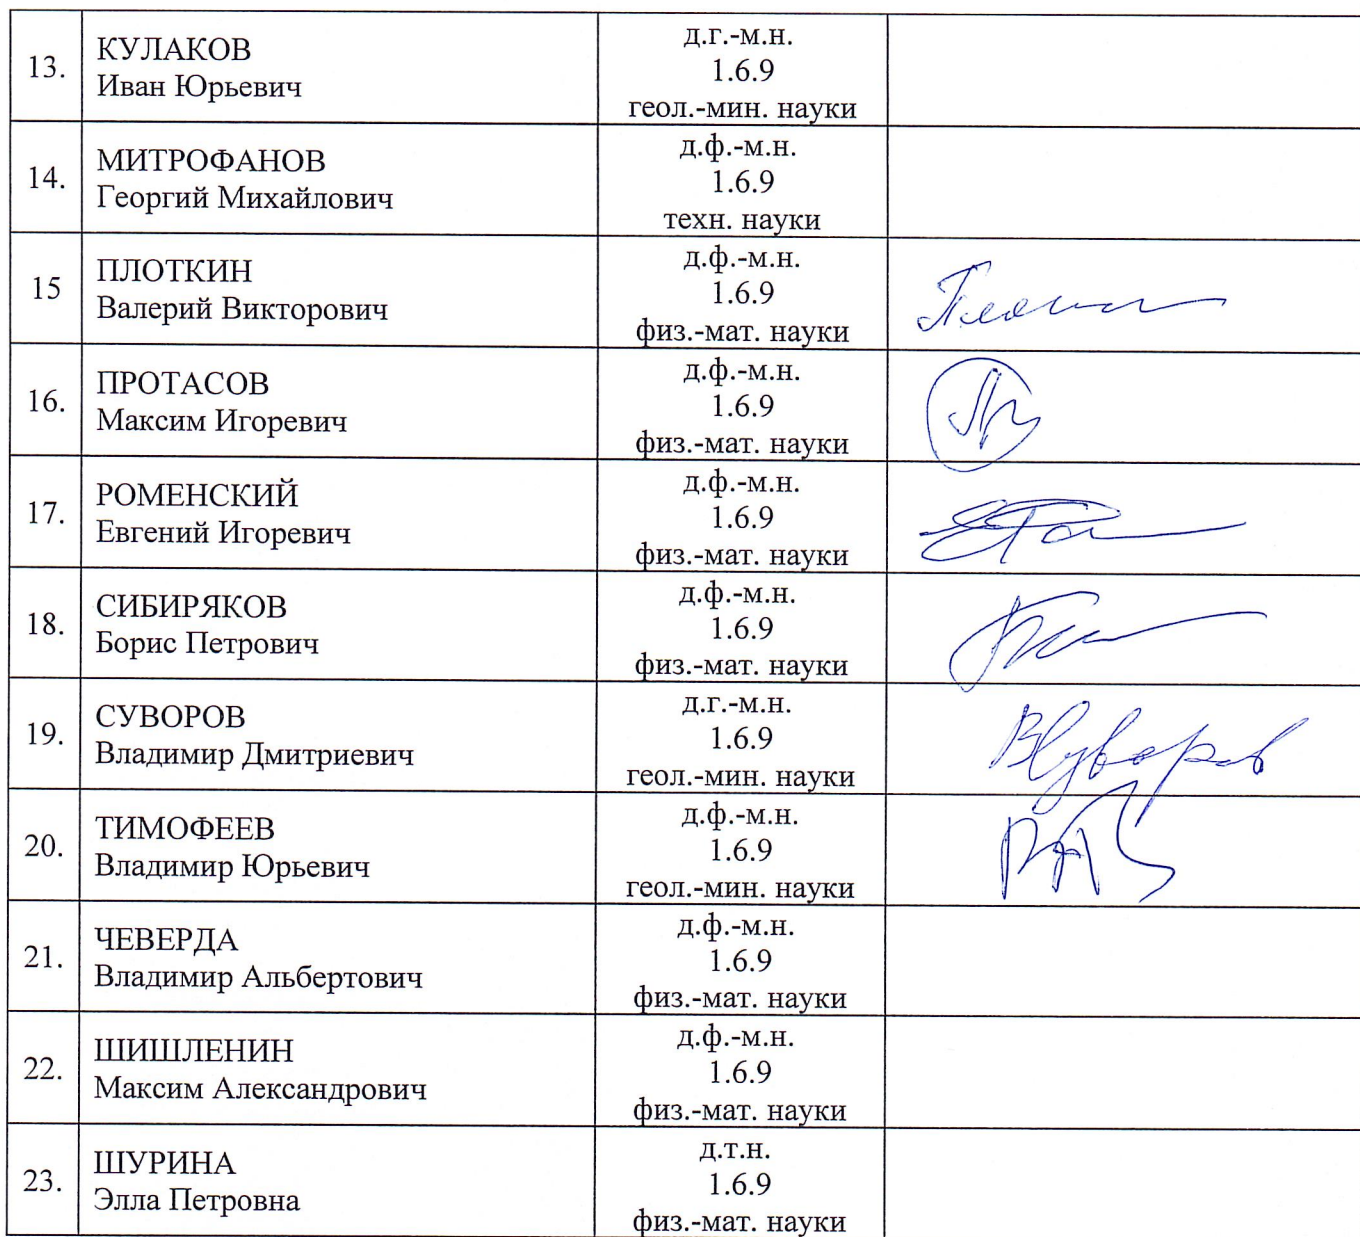 13.
КУЛАКОВ
Иван Юрьевич
д.г.-м.н.
1.6.9
геол.-мин. науки
14.
МИТРОФАНОВ
Георгий Михайлович
д.ф.-м.н.
1.6.9
техн. науки
15
ПЛОТКИН
Валерий Викторович
д.ф.-м.н.
1.6.9
физ.-мат. науки
16.
ПРОТАСОВ
Максим Игоревич
д.ф.-м.н.
1.6.9
физ.-мат. науки
17.
РОМЕНСКИЙ
Евгений Игоревич
д.ф.-м.н.
1.6.9
физ.-мат. науки
18.
СИБИРЯКОВ
Борис Петрович
д.ф.-м.н.
1.6.9
физ.-мат. науки
19.
СУВОРОВ
Владимир Дмитриевич
д.г.-м.н.
1.6.9
геол.-мин. науки
ВСуворов
20.
ТИМОФЕЕВ
Владимир Юрьевич
д.ф.-м.н.
1.6.9
геол.-мин. науки
21.
ЧЕВЕРДА
Владимир Альбертович
д.ф.-м.н.
1.6.9
физ.-мат. науки
22.
ШИШЛЕНИН
Максим Александрович
д.ф.-м.н.
1.6.9
физ.-мат. науки
23.
ШУРИНА
Элла Петровна
д.т.н.
1.6.9
физ.-мат. науки